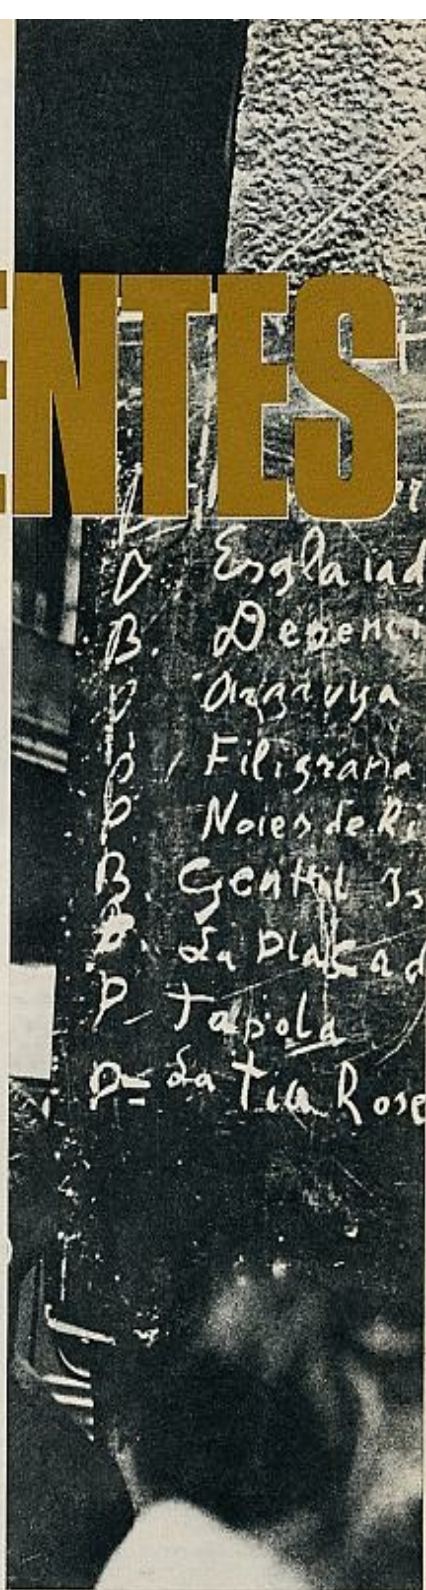 ENTES
D. Esglaiad
B. Depenci
P. Filigrana
P. Noies de Ri
B. Gentil Is
P. La Plaça d
P. Tapola
P= La Tia Rose